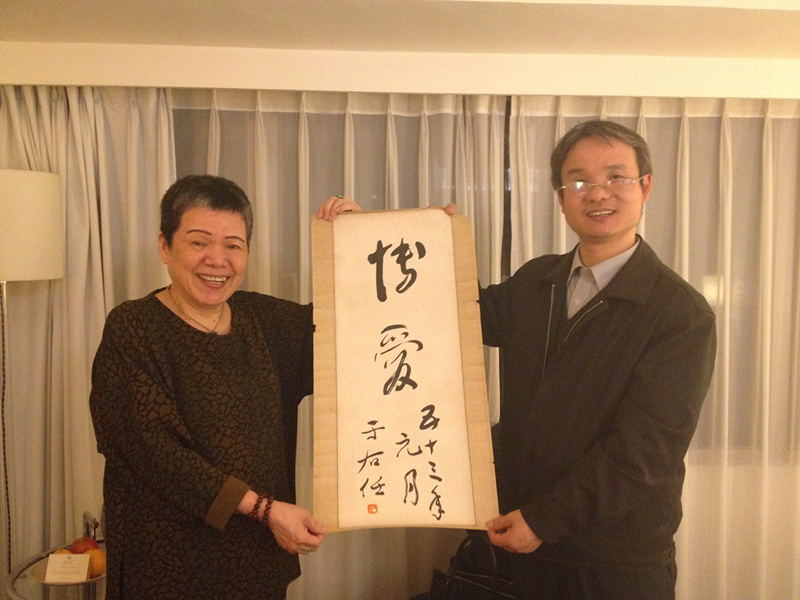 博愛
五十三年
元月
于右任